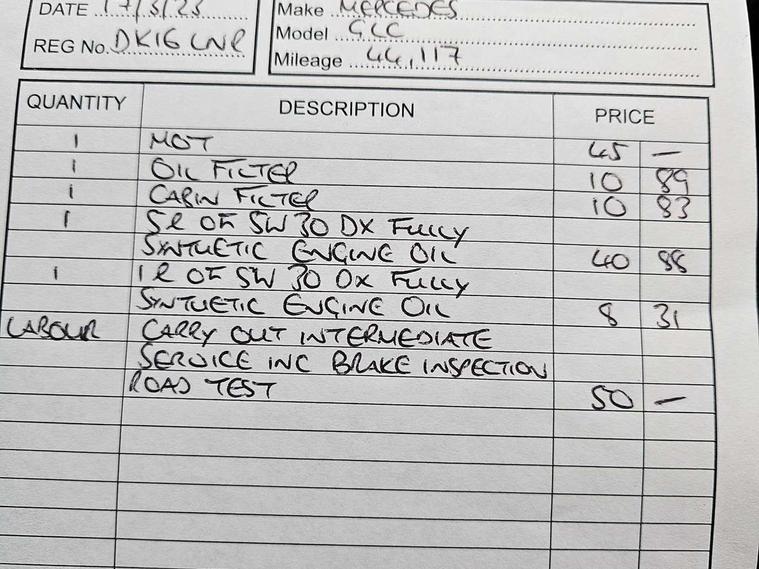 DATE 17/3/23
Make MERCEDES
REG No. DK16 LNR
Model GLC
Mileage 44,117
QUANTITY DESCRIPTION PRICE
1 MOT 45 —
1 OIL FILTER 10 89
1 CABIN FILTER 10 83
1 5l OF 5W 30 DX FULLY
SYNTHETIC ENGINE OIL 40 88
1 1l OF 5W 30 DX FULLY
SYNTHETIC ENGINE OIL 8 31
LABOUR CARRY OUT INTERMEDIATE
SERVICE INC BRAKE INSPECTION
ROAD TEST 50 —